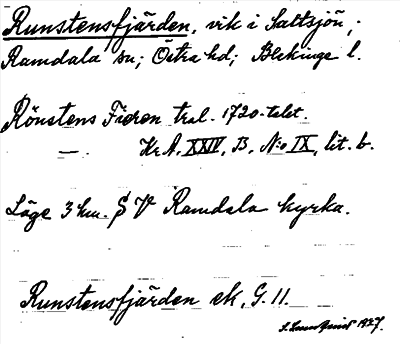 Runstensfjärden, vik i Saltsjön,
Ramdala sn; Östra hd; Blekinge l.
Rönstens Fieren tral. 1720-talet.
— Kr A, XXIV, B, No IX, lit. b.
Läge 3 km. S V Ramdala kyrka.
Runstensfjärden ek, G. 11.
1927.